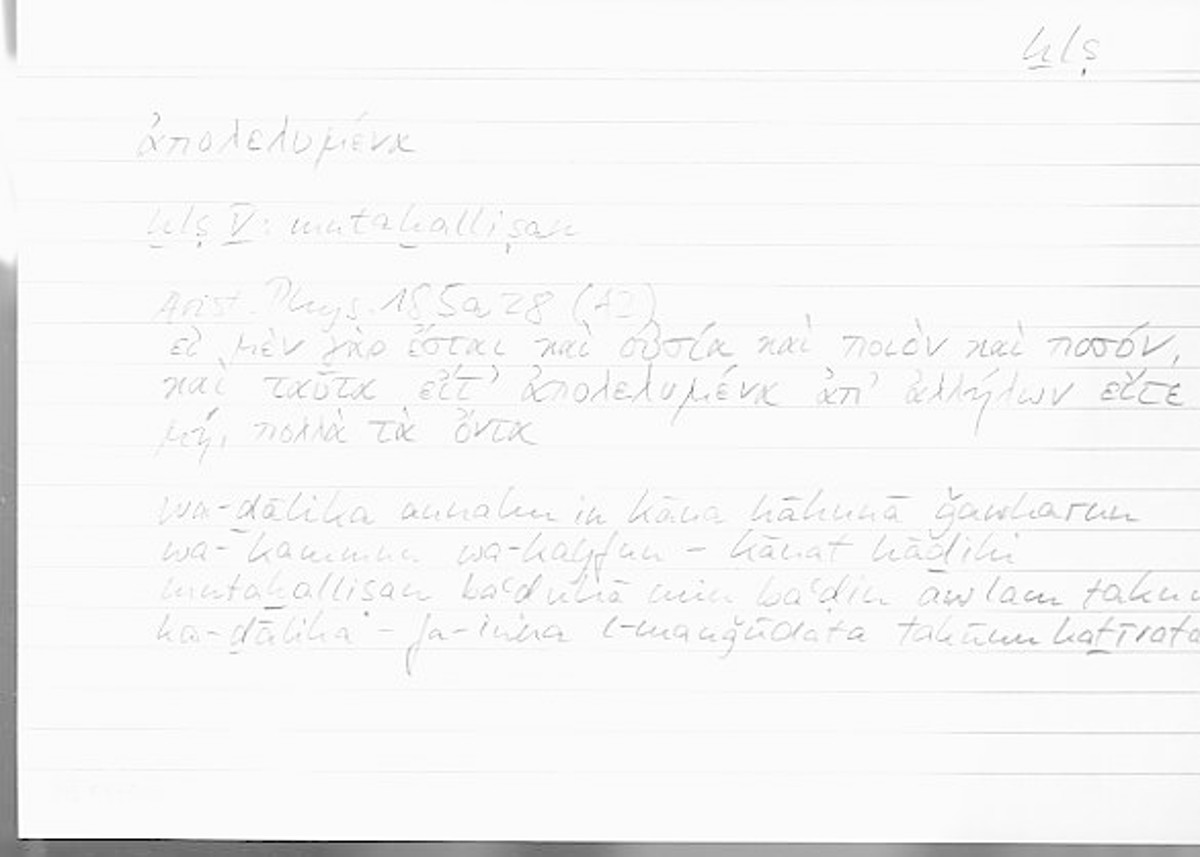 ḫlṣ
ἀπολελυμένα
ḫlṣ V: mutaḫalliṣan
Arist. Phys. 185a28 (A2)
εἰ μὲν γὰρ ἔσται καὶ οὐσία καὶ ποιὸν καὶ ποσόν,
καὶ ταῦτα εἴτ' ἀπολελυμένα ἀπ' ἀλλήλων εἴτε
μή, πολλὰ τὰ ὄντα
wa-ḏālika annahu in kāna hāhunā ǧawharun
wa-kammun wa-kayfun – kānat hāḏihi
mutaḫalliṣan baʿḍuhā min baʿḍin aw lam takun
ka-ḏālika – fa-inna l-mauǧūdāta takūnu kaṯīrata